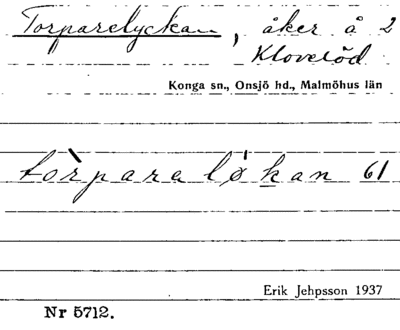 Torparelyckan, åker å 2
Kloveröd
Konga sn., Onsjö hd., Malmöhus län
tòrparaløkan 61
Erik Jehpsson 1937
Nr 5712.